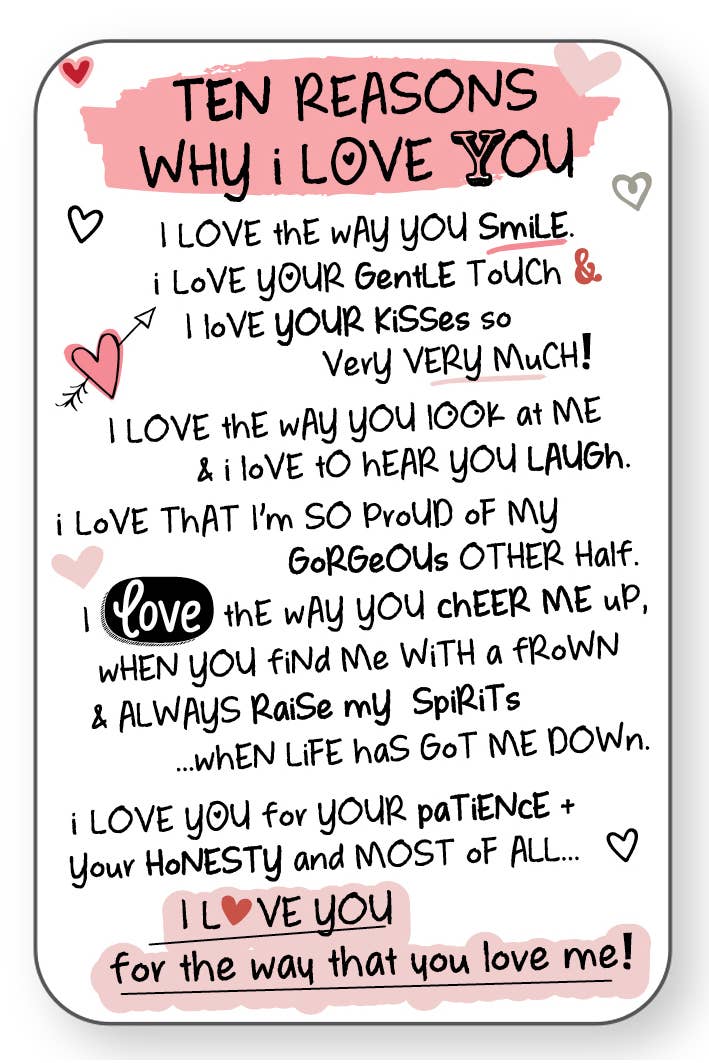 TEN REASONS
WHY i LOVE YOU
I LOVE thE wAY YOU SmiLE.
i LoVE YOUR GentLE ToUCh &
I loVE YOUR KiSSes so
VerY VERY MuCH!
I LOVE thE wAY YOU lOOk at ME
& i loVE tO hEAR YOU LAUGh.
i LoVE ThAT I'm SO ProUD oF MY
GoRGeOUs OTHER Half.
I love thE wAY YOU chEER ME uP,
wHEN YOU fiNd Me WiTH a fRoWN
& ALWAYS RaiSe my SpiRiTs
...whEN LiFE haS GoT ME DOWn.
i LOVE YOU for YOUR paTiENcE +
Your HoNESTY and MOST oF ALL...
I LOVE YOU
for the way that you love me!